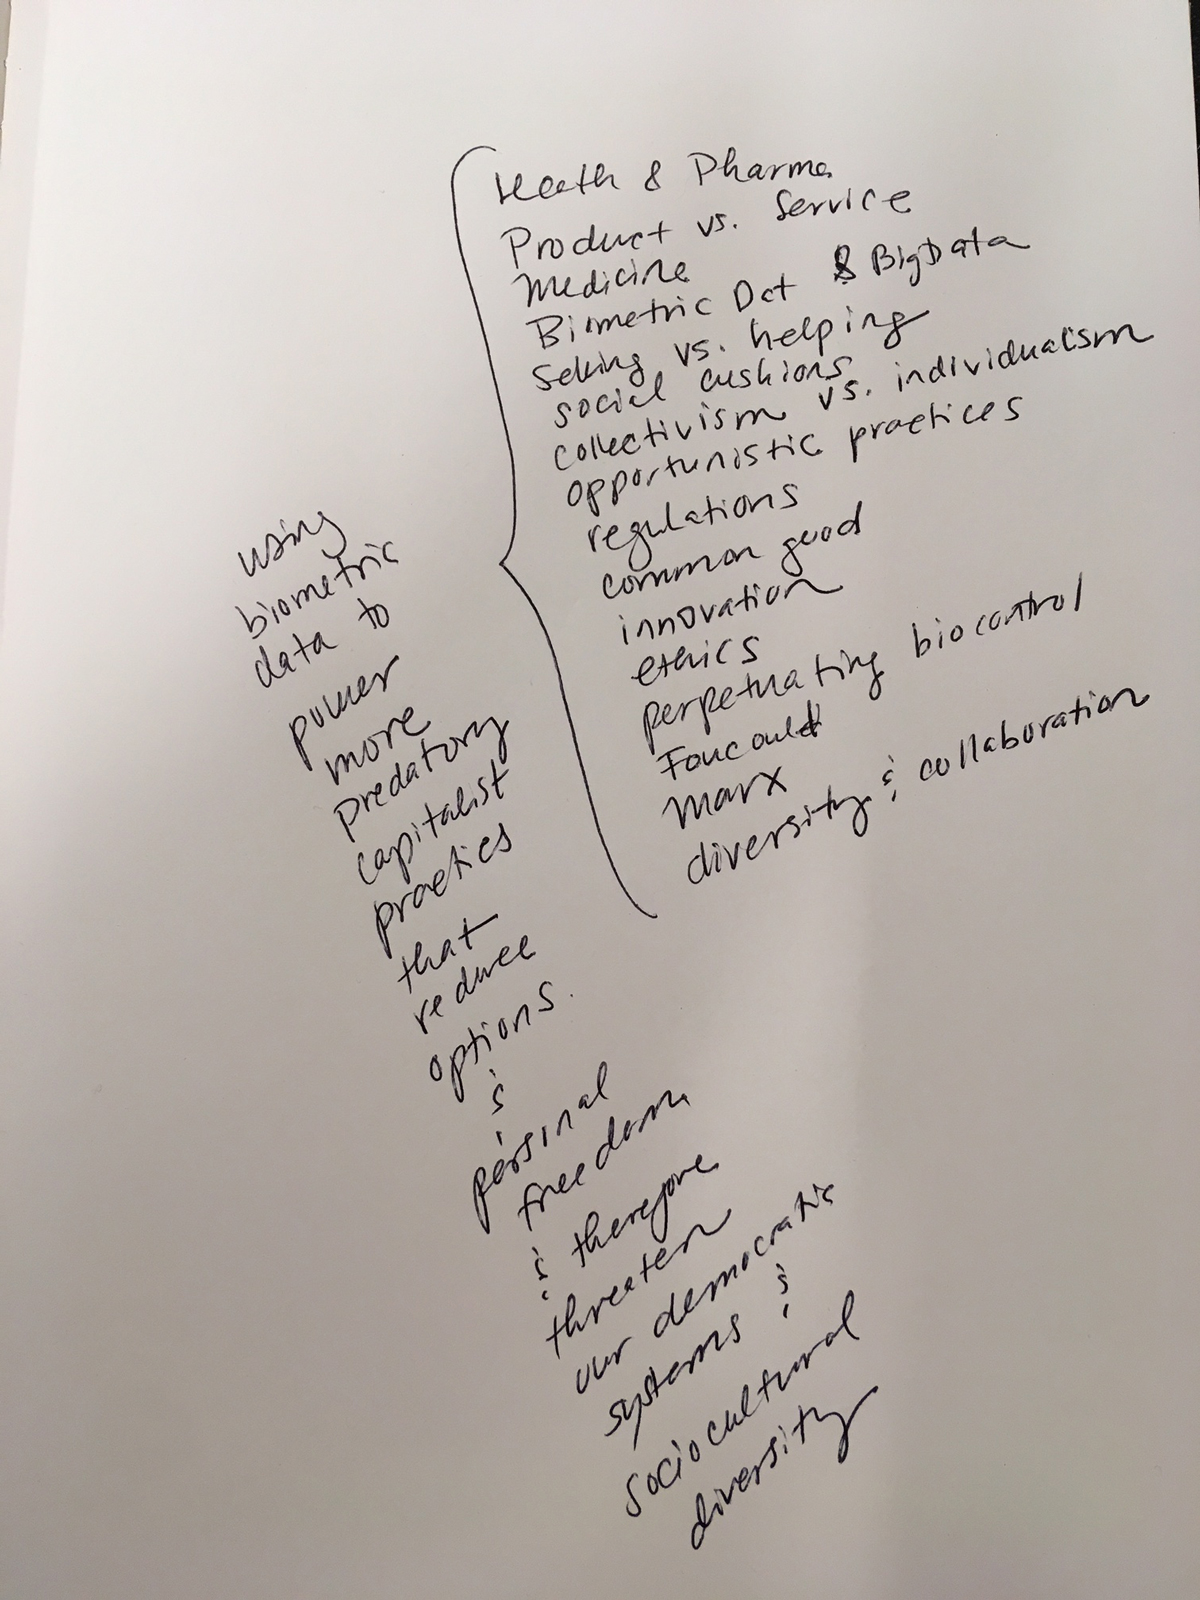 Heath & Pharma
Product vs. Service
Medicine
Biometric Dat & BigData
Selling vs. helping
social cushions
collectivism vs. individualism
opportunistic practices
regulations
common good
innovation
ethics
perpetuating biocontrol
Foucault
Marx
diversity & collaboration
using
biometric
data to
power
more
predatory
capitalist
practics
that
reduce
options.
&
personal
freedom
& therefore
threaten
our democratic
systems &
sociocultural
diversity